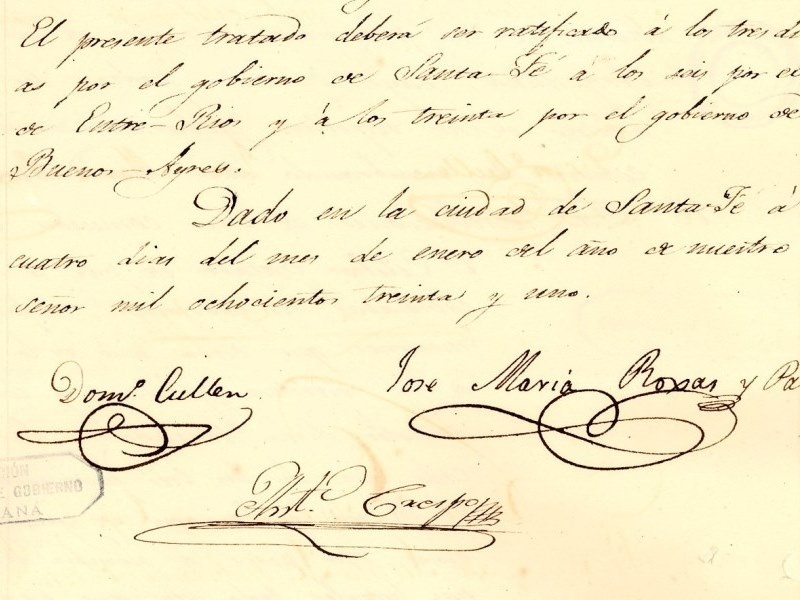 El presente tratado deberá ser ratificado á los tres di
as por el gobierno de Santa-Fé á los seis por el
de Entre-Rios y á los treinta por el gobierno de
Buenos-Ayres.
Dado en la ciudad de Santa-Fé á
cuatro dias del mes de enero del año de nuestro
señor mil ochocientos treinta y uno.
Domo. Cullen
José Maria Roxas y Pa
Anto. Crespo
IÓN
E GOBIERNO
ANA